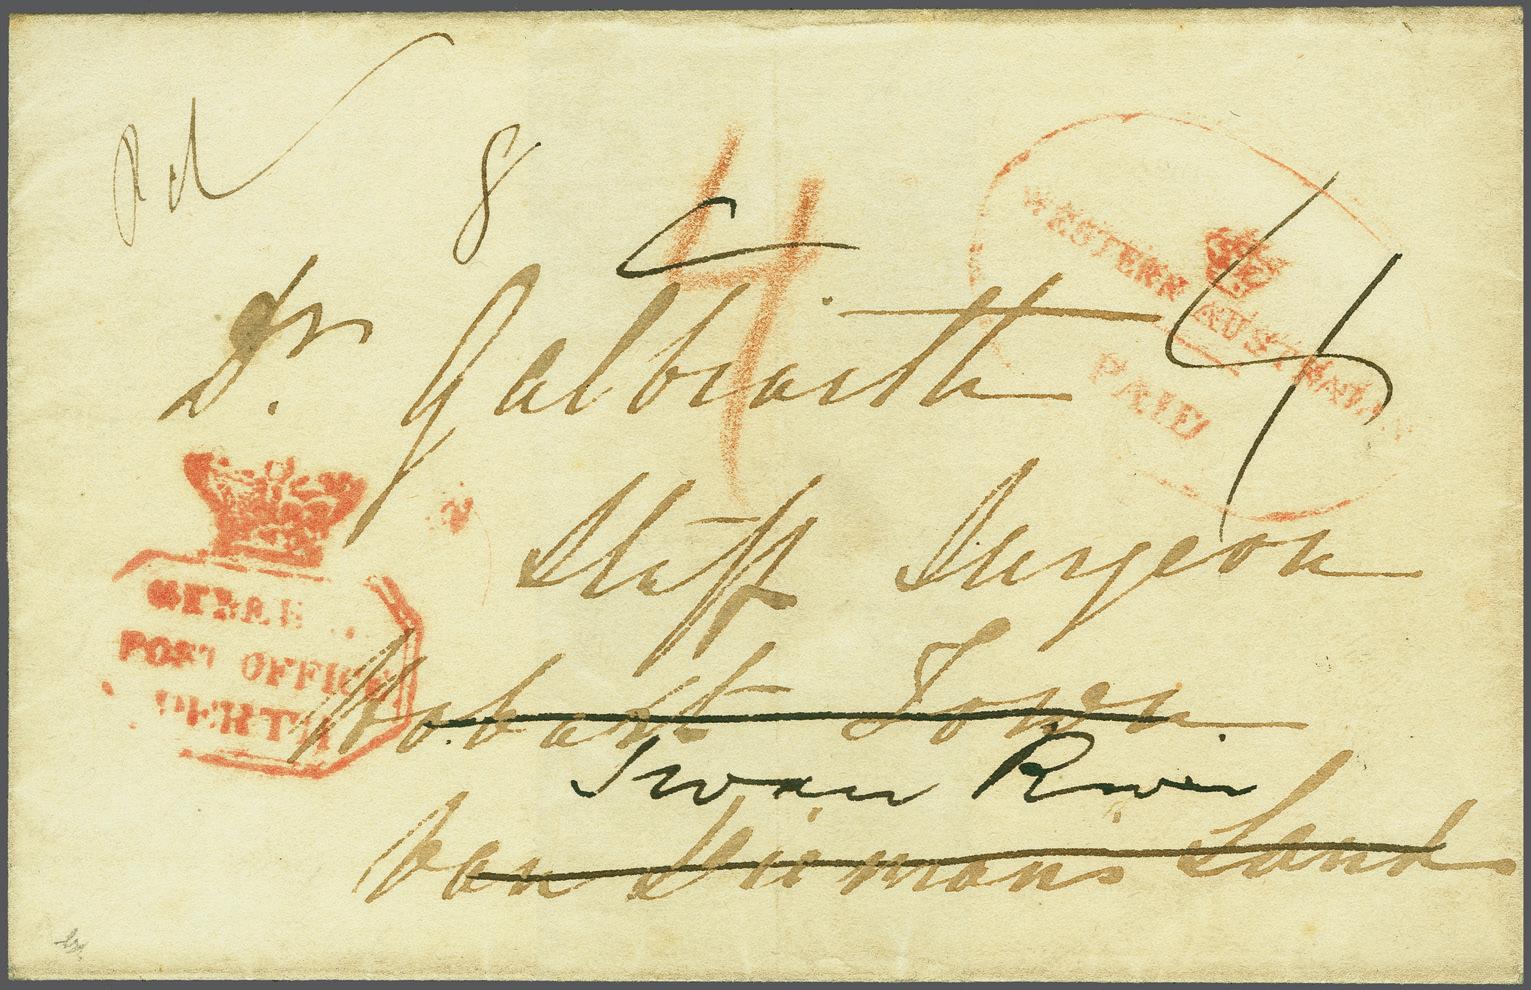 Pd
8
4
4
WESTERN AUSTRALIA
PAID
Dr. Galbraith
Staff Surgeon
GENERAL
POST OFFICE
PERTH
Hobart Town
Swan River
Van Diemans Land